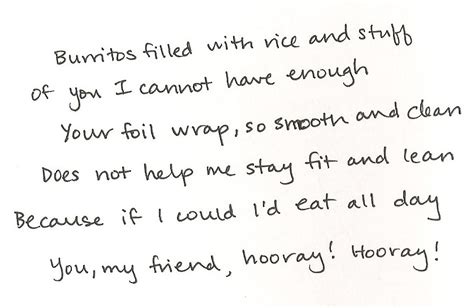 Burritos filled with rice and stuff
of you I cannot have enough
Your foil wrap, so smooth and clean
Does not help me stay fit and lean
Because if I could I'd eat all day
You, my friend, hooray! Hooray!